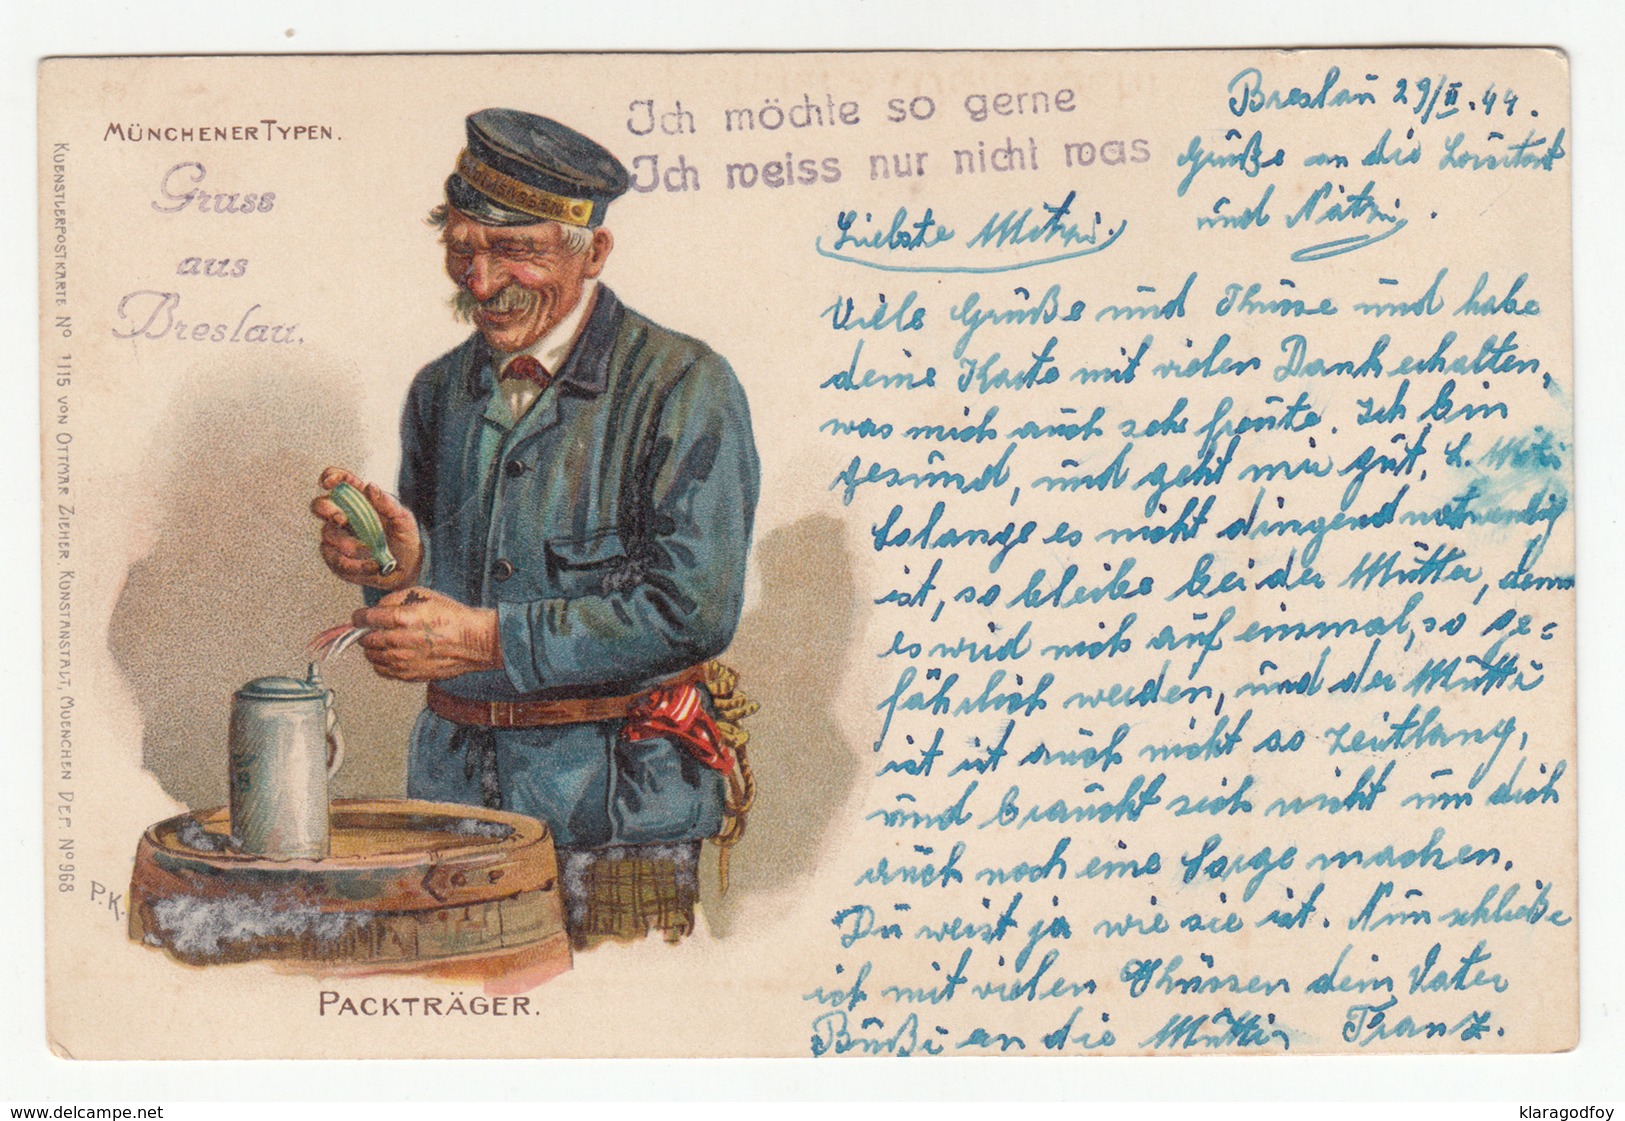 MÜNCHENER TYPEN.
Gruss
aus
Breslau.
Ich möchte so gerne
Ich weiss nur nicht was
KUENSTLERPOSTKARTE No 1115 VON OTTMAR ZIEHER, KUNSTANSTALT, MUENCHEN DEP. No 968
P.K.
PACKTRÄGER.
Breslaŭ 29/II.44.
Grüße an die
ŭnd
Liebste Mitzi.
Viele Grüße ŭnd Khüsse ŭnd habe
deine Karte mit vielen Dank erhalten,
was mich aŭch sehr freŭte. Ich bin
gesŭnd, ŭnd geht mir gŭt. L. Mitzi
Solange es nicht dingend notwendig
ist, so bleibe bei der Mŭtter, denn
es wird mich aŭf einsmal, so ge=
fährlich werden, ŭnd der Mŭtti
ist ist aŭch nicht so zeitlang,
ŭnd braŭcht sich nicht ŭm dich
aŭch noch eine Sorge machen.
Dŭ weist ja wie sie ist. Nŭn schließe
ich mit vielen Khüssen dein Vater
Bŭßi an die Mŭtti Franz.
klaragodfoy